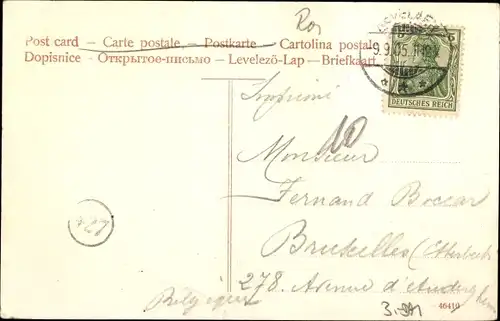 Ros
Post card – Carte postale – Postkarte – Cartolina postale
Dopisnice – Открытое-письмо – Levelező-Lap – Briefkaart
9.9.05
DEUTSCHES REICH
Imprimé
Monsieur
Fernand Boccar
Bruxelles (Etterbeek
278, Avenue d'Auderghem
Belgique
L24
46410